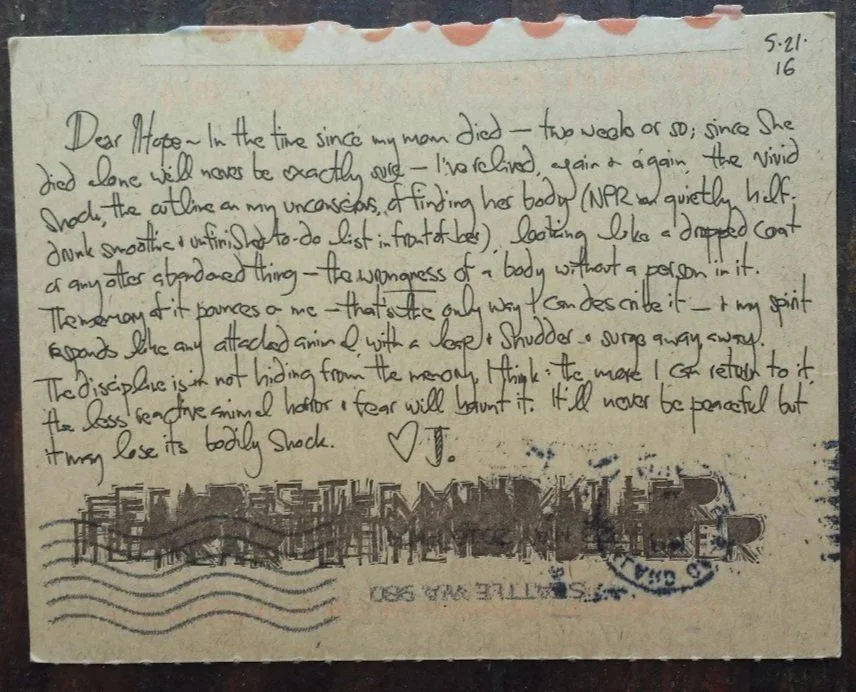 5·21·
16
Dear Hope ~ In the time since my mom died — two weeks or so; since she
died alone we'll never be exactly sure — I've relived, again & again, the vivid
shock, the outline on my unconscious, of finding her body (NPR on quietly, half-
drunk smoothie & unfinished to-do list in front of her), looking like a dropped coat
or any other abandoned thing — the wrongness of a body without a person in it.
The memory of it pounces on me — that's the only way I can describe it — & my spirit
responds like any attacked animal, with a leap & shudder & surge away, away.
The discipline is in not hiding from the memory, I think: the more I can return to it,
the less reactive animal horror & fear will haunt it. It'll never be peaceful but
it may lose its bodily shock. ♡ J.
FEAR IS THE MIND KILLER
SEATTLE WA 980